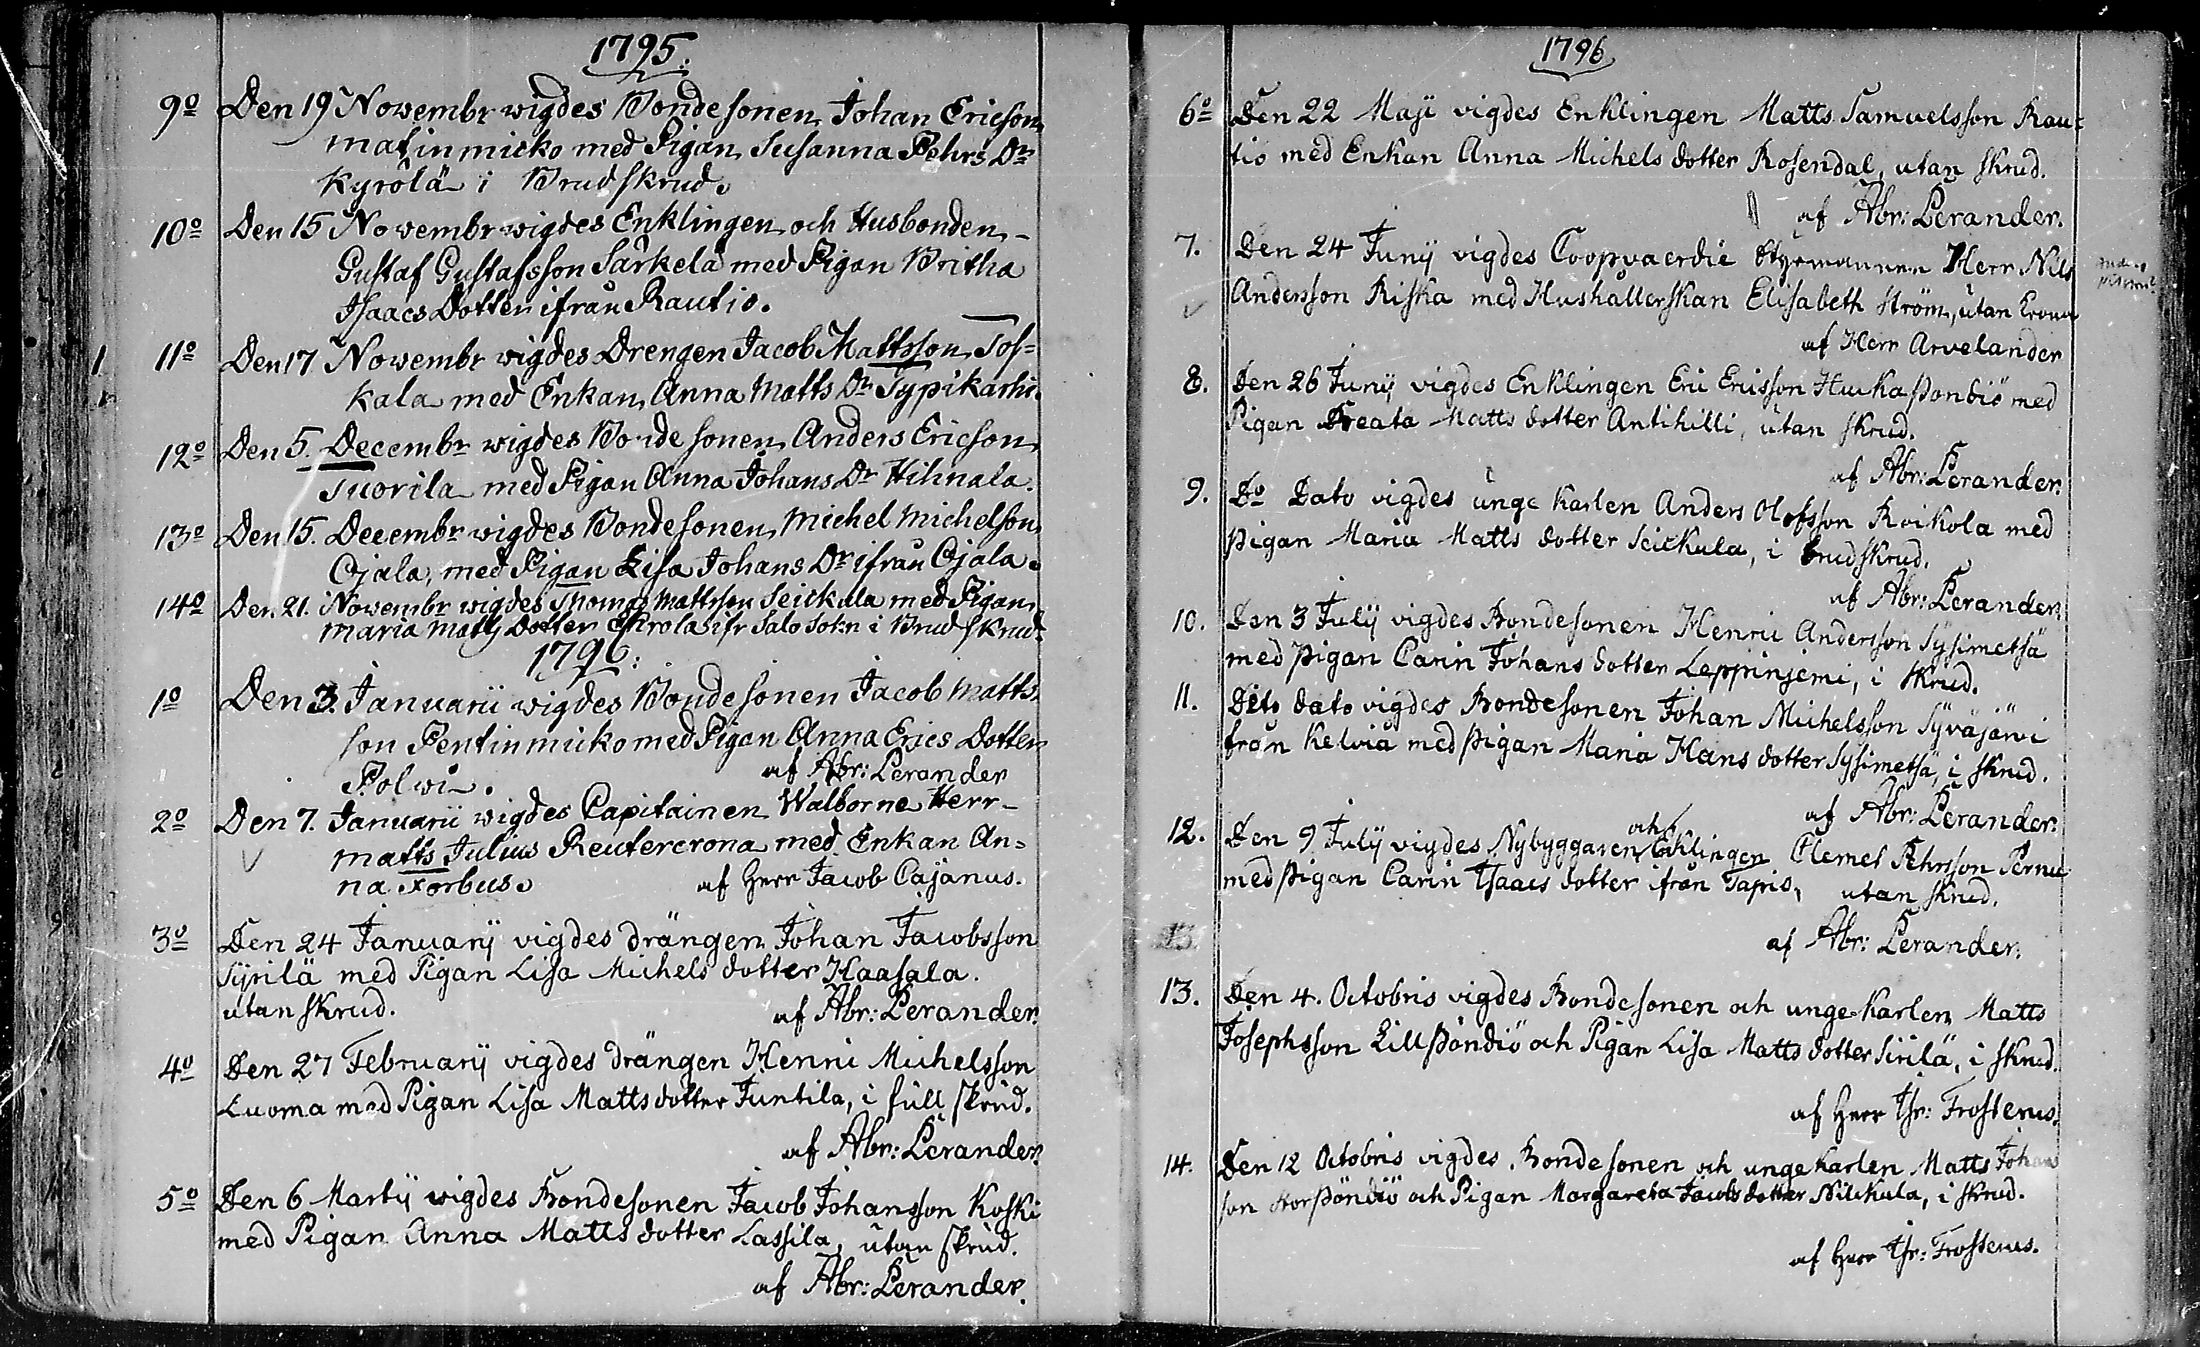 1795.
9o Den 19 Novembr wigdes Bondesonen Johan Ericson
matinmicko med Pigan Susanna Pehrs Dr
Kyrölä i Brudskrud.
10o Den 15 Novembr wigdes Enklingen och Husbonden
Gustaf Gustafsson Särkelä med Pigan Britha
Isaacs Dotter ifrån Rautio.
11o Den 17 Novembr wigdes Drengen Jacob Mattsson Tos=
kala med Enkan Anna Matts Dr Typikarhi.
12o Den 5. Decembr wigdes Bondesonen Anders Ericson
Tuorila med Pigan Anna Johans Dr Hihnala.
13o Den 15. Decembr wigdes Bondesonen Michel Michelson
Ojala, med Pigan Lisa Johans Dr ifrån Ojala.
14o Den 21. Novembr wigdes Thomas Mattsson Seickula med Pigan
Maria Matts Dotter ifr Salo Sokn i Brudskrud.
1796:
1o Den 3. Januarii wigdes Bondesonen Jacob Matts
son Pentinmicko med Pigan Anna Erics Dotter
Polwi. af Abr: Lerander
2o Den 7. Januarii wigdes Capitainen Walborne Herr
matts Julius Reutercrona med Enkan An=
na Forbus. af Herr Jacob Cajanus.
3o Den 24 Januarij vigdes drängen Johan Jacobsson
Syrilä med Pigan Lisa Michels dotter Haasala.
utan skrud. af Abr: Lerander.
4o Den 27 Februarij vigdes drängen Henric Michelsson
Luoma med Pigan Lisa Matts dotter Juntila, i full skrud.
af Abr: Lerander.
5o Den 6 Martij wigdes Bondesonen Jacob Johansson Koski
med Pigan Anna Matts dotter Lassila, utan skrud.
af Abr: Lerander.
1796
6o Den 22 Maji vigdes Enklingen Matts Samuelsson Rau=
tio med Enkan Anna Michels dotter Rosendal, utan skrud.
af Abr: Lerander.
7. Den 24 Junij vigdes Coopvaerdie Styrmannen Herr Nils
Andersson Riska med Hushållerskan Elisabeth Ström, utan Crona
af Herr Arvelander
8. Den 26 Junij vigdes Enklingen Eric Ericsson Huckapondiö med
Pigan Beata Matts dotter Antihilli, utan skrud.
af Abr: Lerander.
9. Do Dato vigdes unge Karlen Anders Olofsson Roikola med
pigan Maria Matts dotter Seickula, i brudskrud.
af Abr: Lerander.
10. Den 3 Julij vigdes Bondesonen Henric Andersson Sysimetsä
med pigan Carin Johans dotter Leppinjemi, i skrud.
11. Dito dato vigdes Bondesonen Johan Michelsson Syväjärvi
från Kelviå med pigan Maria Hans dotter Sysimetsä, i skrud.
af Abr: Lerander.
12. Den 9 Julij vigdes Nybyggaren och Enklingen Clemet Pehrsson Pernu
med pigan Carin Isaacs dotter ifrån Tapio, utan skrud.
af Abr: Lerander.
13. Den 4. Octobris vigdes Bondesonen och unge Karlen Matts
Josephsson Lillpöndiö och Pigan Lisa Matts dotter Sirilä, i skrud.
af Herr Isr: Frosterus.
14. Den 12 Octobris vigdes Bondesonen och unge Karlen Matts Johans
son Storpöndiö och Pigan Margareta Jacobs dotter Nilckula, i skrud.
af Herr Isr: Frosterus.